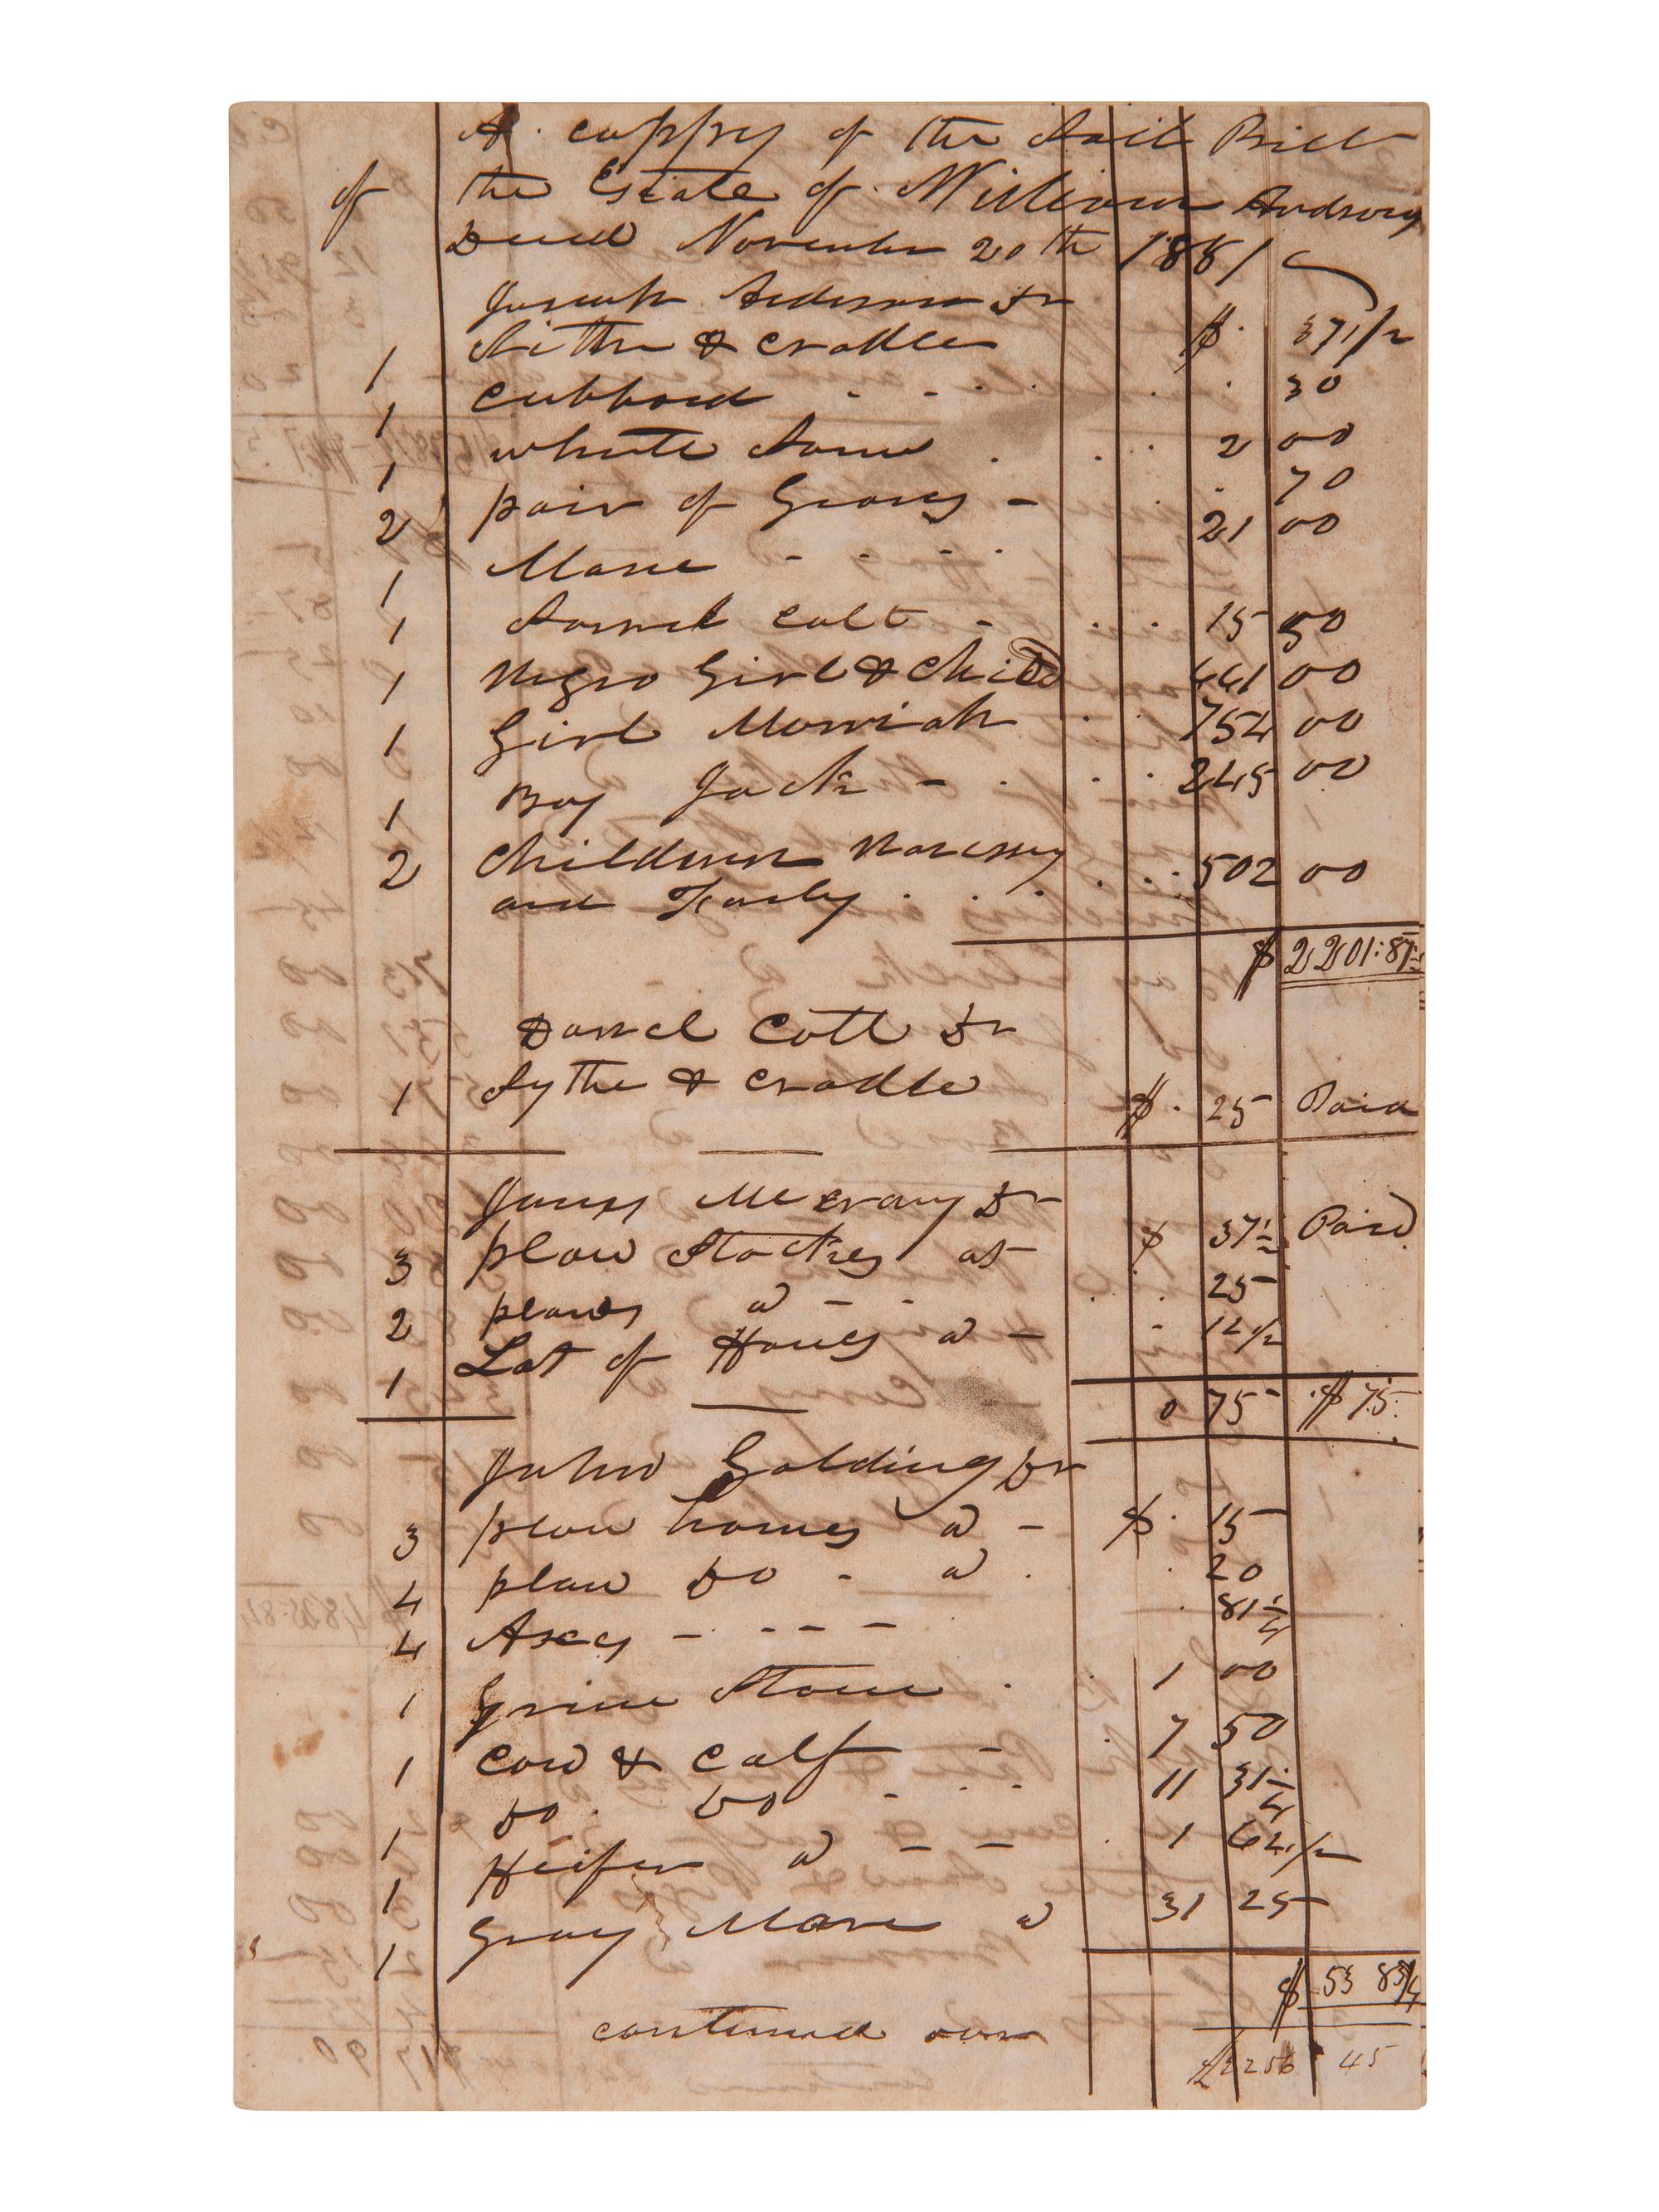 A. coppy of the Sail Bill
of the Estate of William
Decd November 20th 18 1
Joseph Dr
1 Sithe & cradle $ . 37 1/2
1 cubbord - - . . . 30
1 whete stone . . . 2 00
2 pair of Gears - . . 70
1 Mare - . - . 21 00
1 Sorrel colt - . . 15 50
1 Negro Girl & child 441 00
1 Girl Morriah . . 754 00
1 Boy Jack - . . . 245 00
2 Childrren
and . . . . . . 502 00
$ 2201:87
Colt Dr
1 Sythe & cradle $ . 25 Paid
James McCrary Dr
3 plow Stockes at $ 37 1/2 Paid
2 plows a - . . . 25
1 Lot of Houes a - - 12 1/2
0 75 $ 75
John Golding Dr
3 plow homes a - $ . 15
4 plow Do - a . . 20
4 Axes - - - - . 81 1/4
1 Grine Stone . . 1 00
1 cow & calf - . 7 50
1 Do . Do - . . 11 31 1/4
1 Heifer a - - . 1 62 1/2
1 Gray Mare a 31 25
$ 53 85 3/4
continued over
2256 45